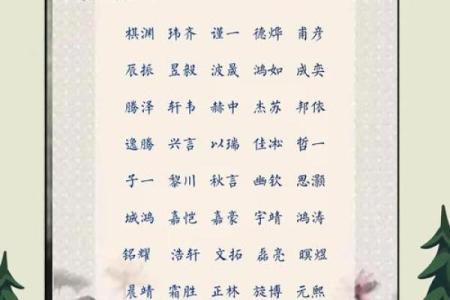 棋渊 玮齐 谨一 德烨 甫彦
辰振 昱毅 波晟 鸿如 成奕
腾泽 轩韦 赫中 杰苏 邦依
逸腾 兴言 以瑞 佳凇 哲一
子一 黎川 秋言 幽钦 思灏
城鸿 嘉恺 嘉豪 宇靖 鸿涛
铭耀 浩轩 文拓 磊亮 暝煜
晨靖 霜胜 正林 旋博 元熙